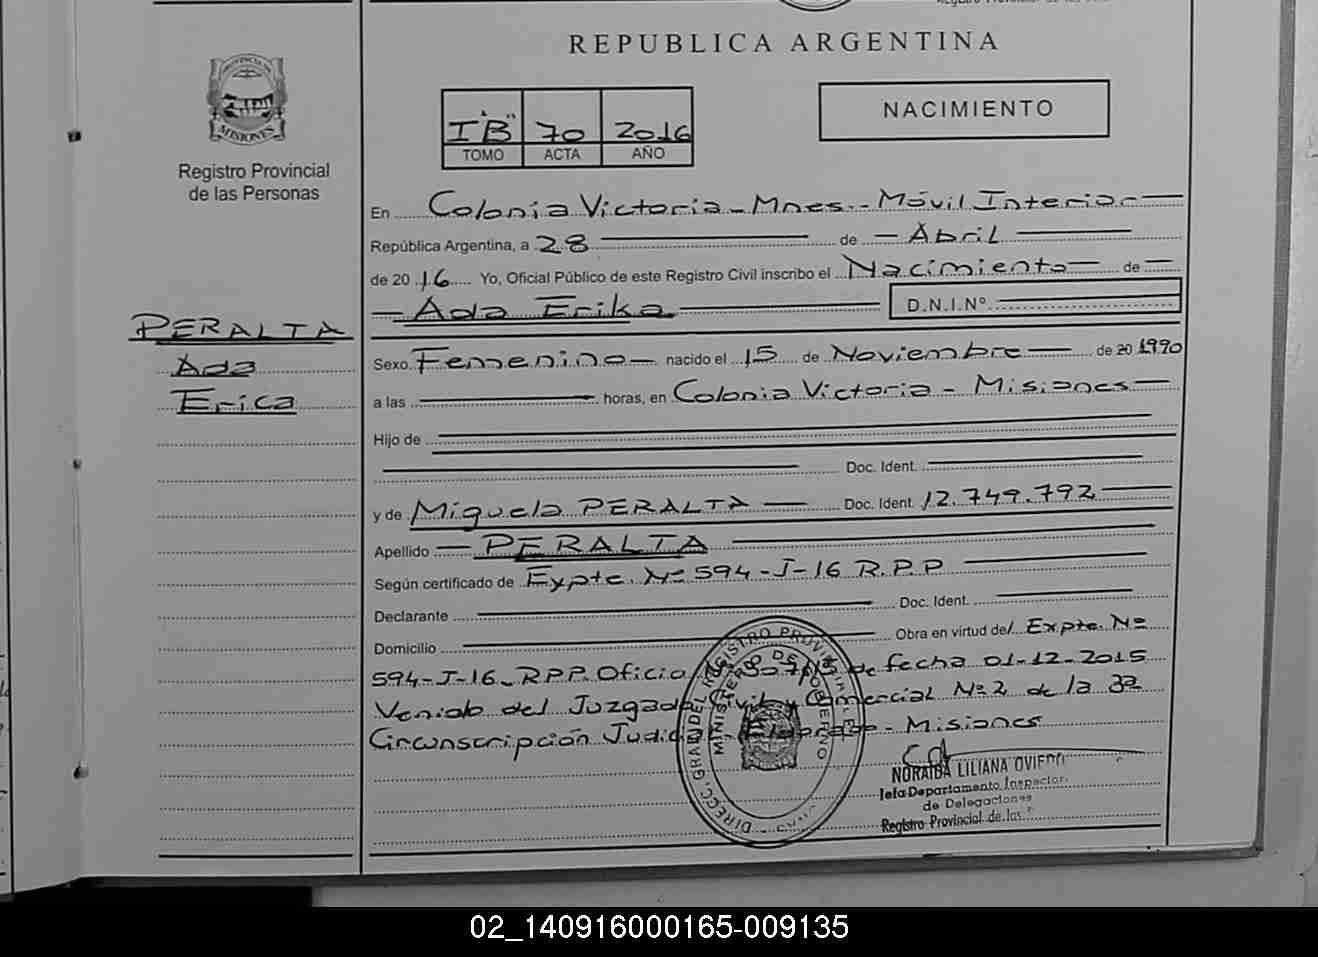 REPUBLICA ARGENTINA
PROVINCIA DE
MISIONES
Registro Provincial
de las Personas
I "B" 70 2016
TOMO ACTA AÑO
NACIMIENTO
En Colonia Victoria - Mnes. - Móvil Interior
República Argentina, a 28 de Abril
de 2016 Yo, Oficial Público de este Registro Civil inscribo el Nacimiento de
Ada Erika D.N.I.Nº
PERALTA
Ada
Erica
Sexo Femenino nacido el 15 de Noviembre de 20 1990
a las horas, en Colonia Victoria - Misiones
Hijo de
Doc. Ident.
y de Miguela PERALTA Doc. Ident. 12.749.792
Apellido PERALTA
Según certificado de Expte. Nº 594-J-16 R.P.P
Declarante Doc. Ident.
Domicilio Obra en virtud del Expte. Nº
594-J-16. RPP. Oficio de fecha 01-12-2015
Venido del Juzgado Civil y Comercial Nº 2 de la 3a
Circunscripción Judicial - Eldorado - Misiones
DIRECC. GRAL. DEL REGISTRO PROVINCIAL DE
MINISTERIO DE GOBIERNO
NORAIDA LILIANA OVIEDO
Jefa Departamento Inspector.
de Delegaciones
Registro Provincial de las
02_140916000165-009135